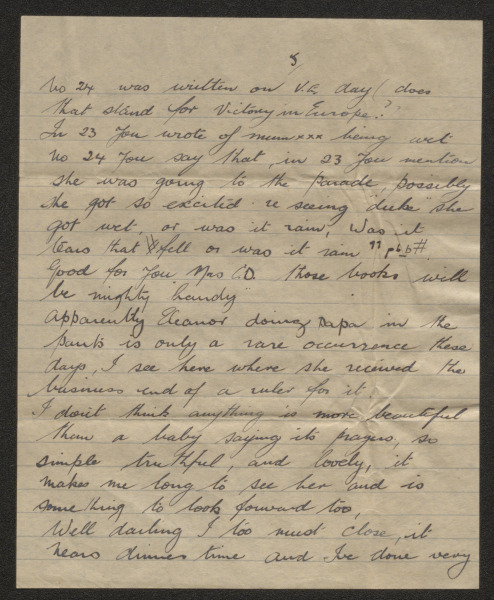 5
No 24 was written on V.E. day (does
that stand for Victory in Europe?)
In 23 you wrote of mum xxx being wet
No 24 you say that, in 23 you mention
she was going to the parade, possibly
she got so excited u seeing "duke" she
got wet, or was it rain, Was it
tears that fell or was it rain
Good for you Mrs D. those books will
be mighty handy
apparently Eleanor doing papa in the
pants is only a rare occurrence these
days, I see here where she recieved the
business end of a ruler for it.
I don't think anything is more beautiful
than a baby saying its prayers, so
simple truthful, and lovely, it
makes me long to see her and is
something to look forward too,
Well darling I too must close, it
nears dinner time and I've done very